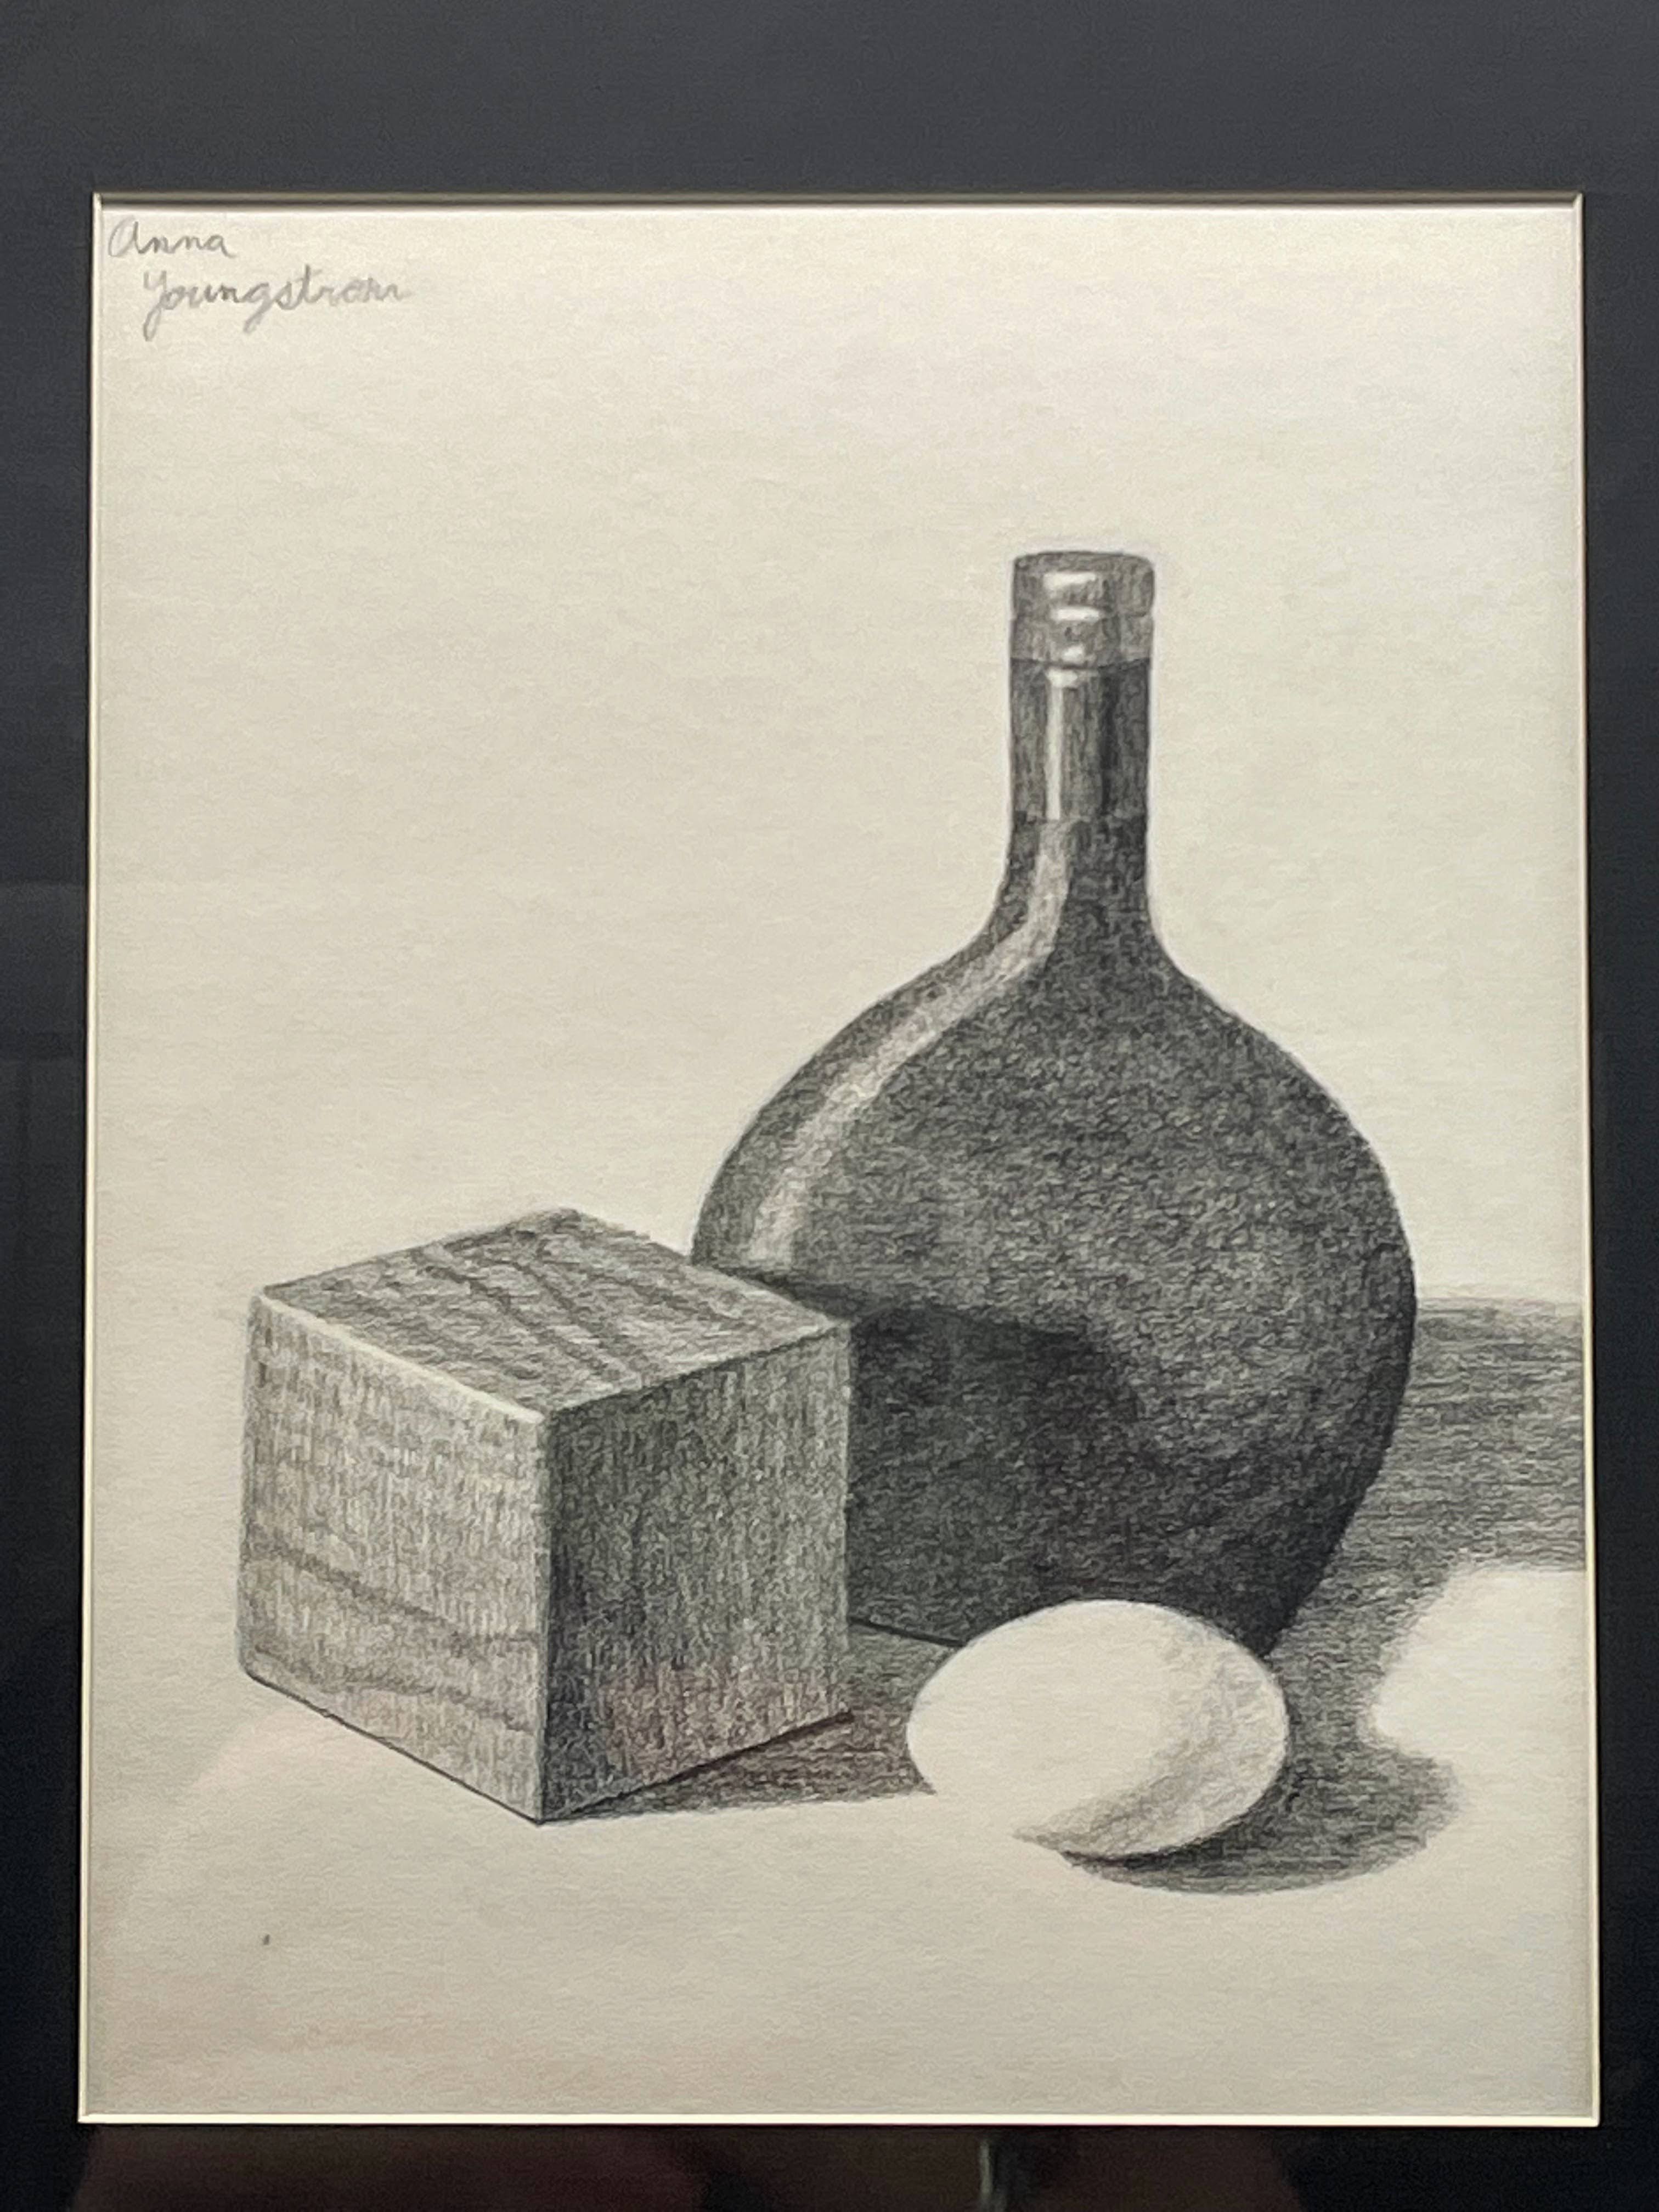 Anna
Youngstrom